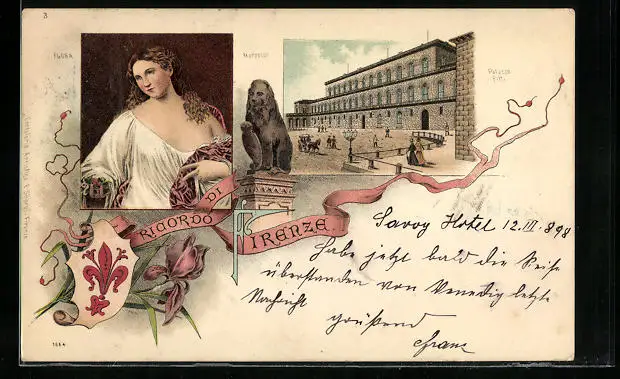 3
FLORA
Marzocco
Palazzo
Pitti
RICORDO DI
FIRENZE
Savoy Hotel 12.III.898
Habe jetzt bald die Reise
überstanden von Venedig letzte
Nachricht
grüßend
Franz